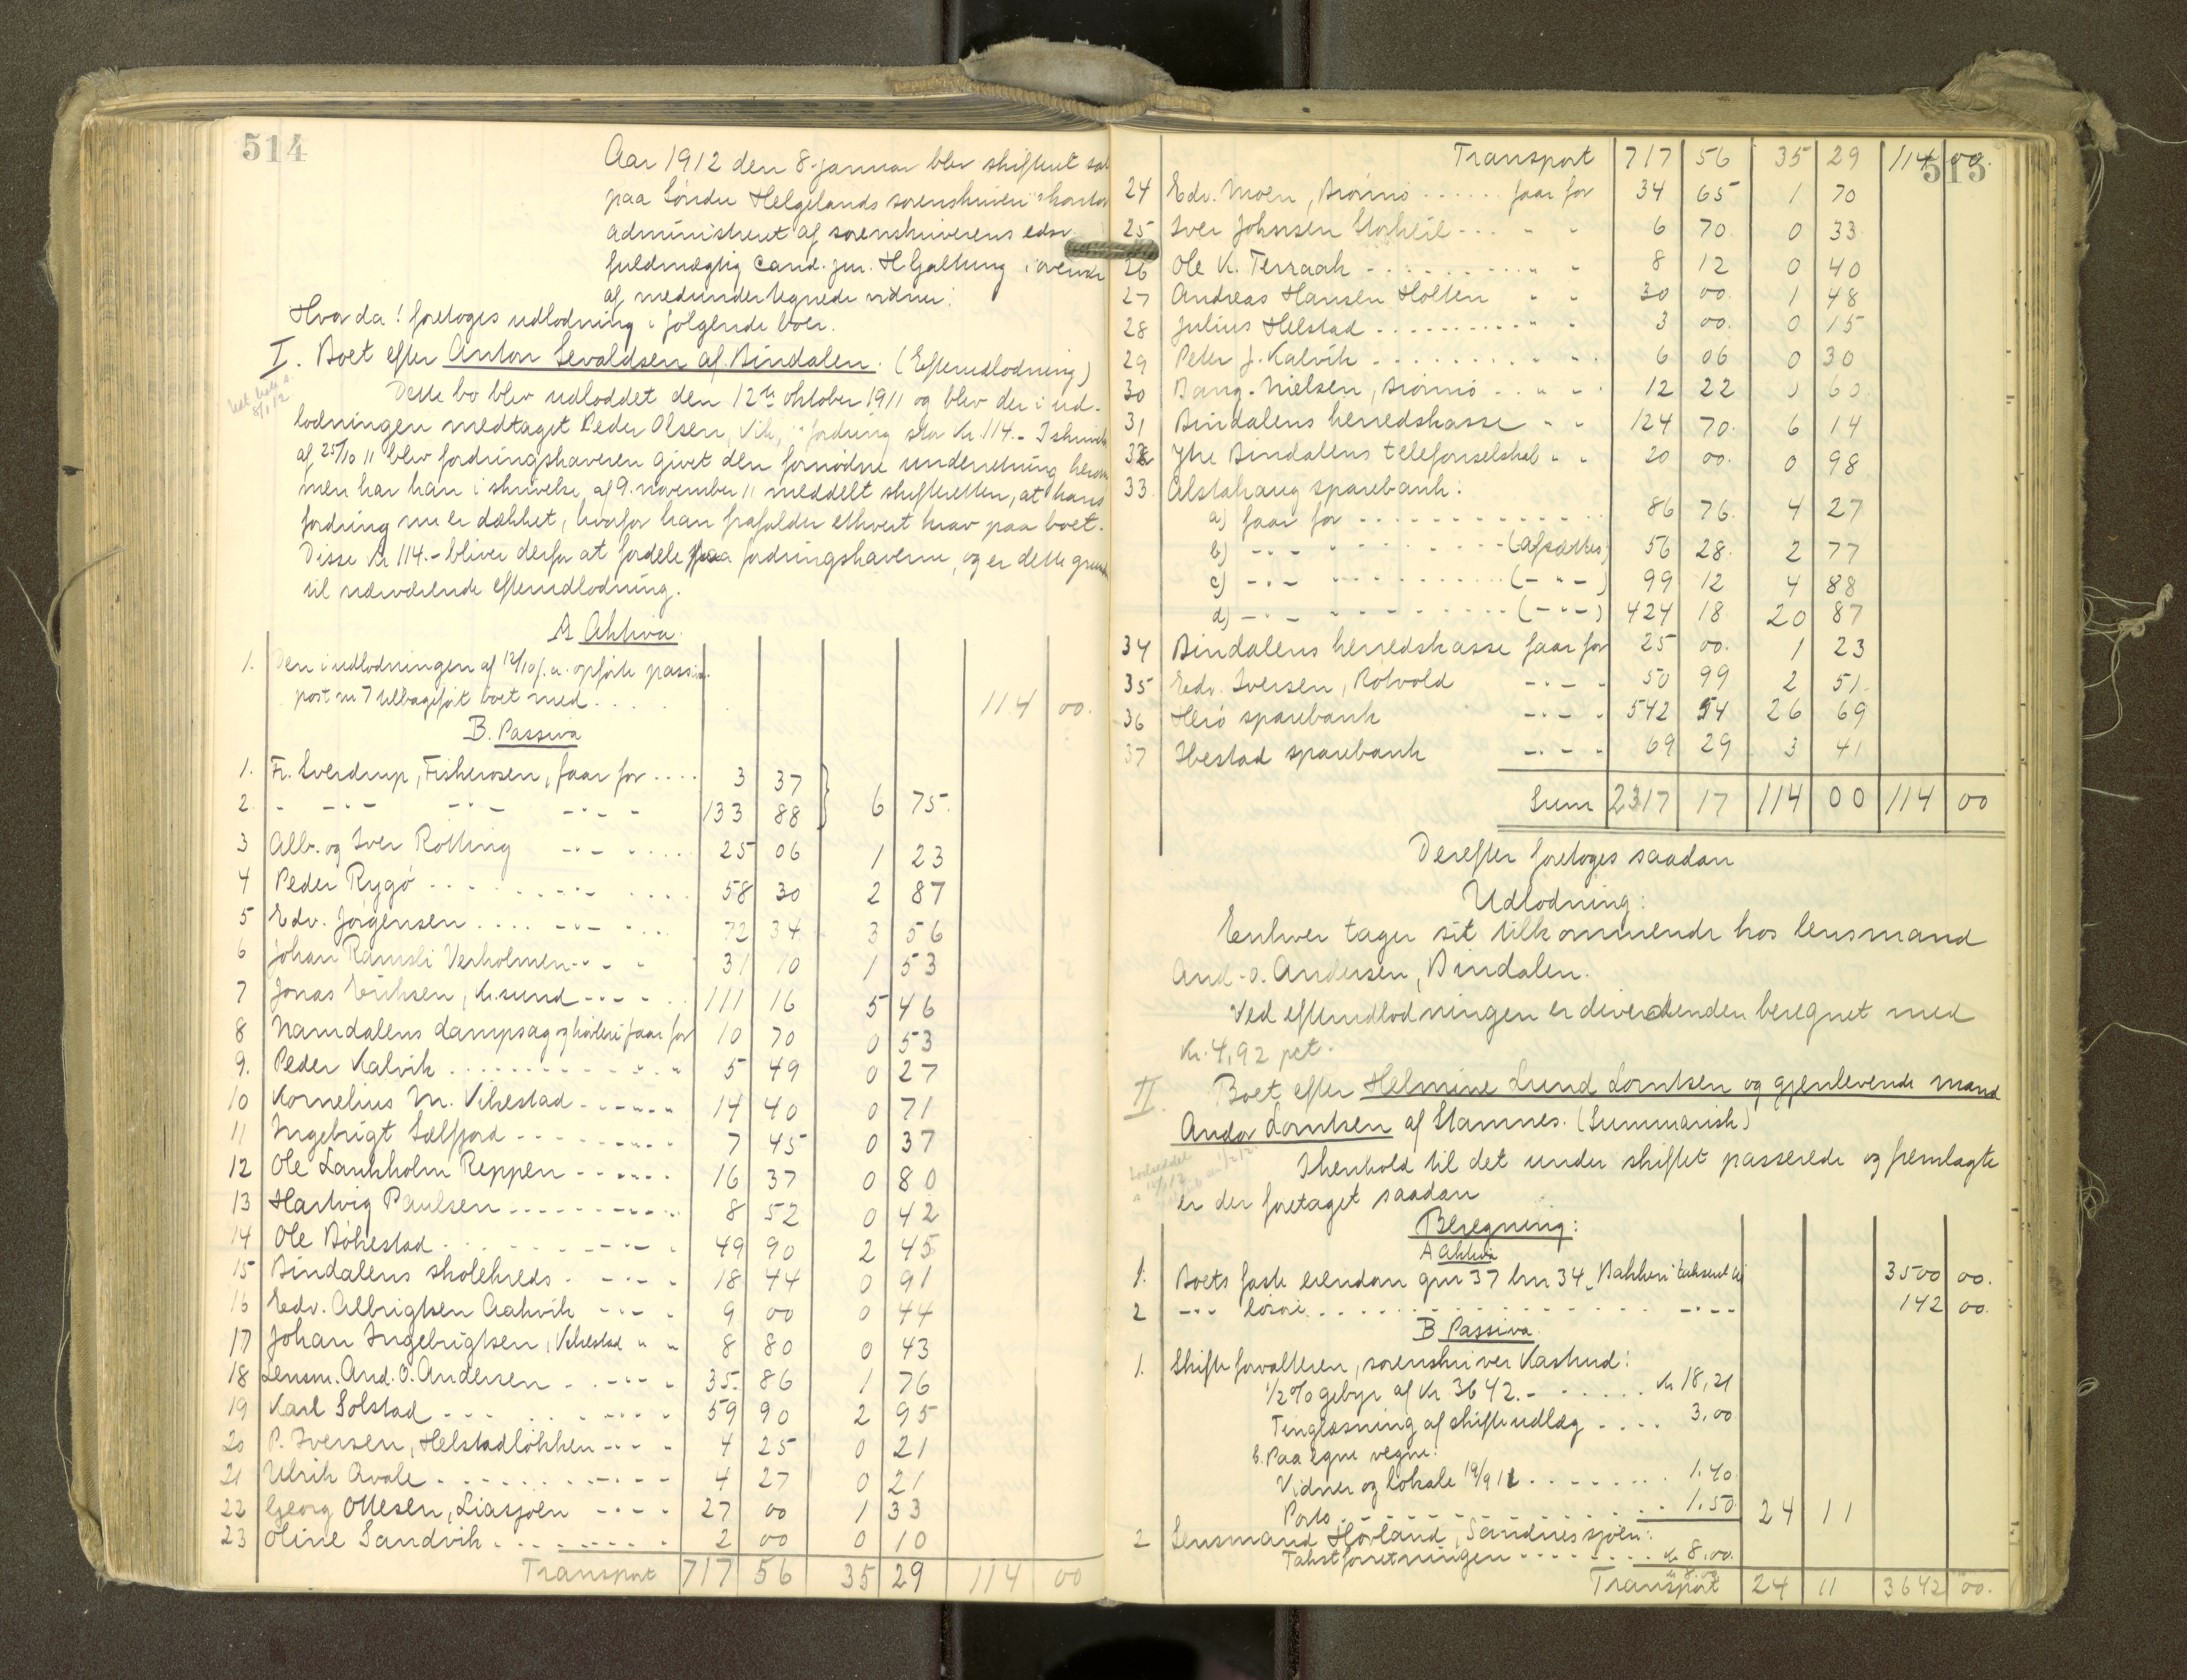 514
Aar 1912 den 8. januar blev skifteret sat
paa Søndre Helgelands sorenskriver kontor
administreret af sorenskriverens edsv.
fuldmægtig cand. jur. H Galtung i overvær
af medundertegnede vidner:
Hvorda! foretoges udlodning i følgende boer.
I. Boet efter Anton Sevaldsen af Bindalen. (Efterudlodning)
8/1 12
Dette bo blev udloddet den 12te oktober 1911 og blev der i ud-
lodningen medtaget Peder Olsen, Vik, " fordring stor Kr. 114.- I skrivelse
af 25/10 11 blev fordringshaveren givet den fornødne underretning herom
men har han i skrivelse af 9. november 11 meddelt skifteretten, at hans
fordring nu er dækket, hvorfor han frafalder ethvert krav paa boet.
Disse Kr 114.- bliver derfor at fordele paa fordringshaverne, og er dette grund
til nærværende efterudlodning.
A Aktiva.
1. Den i udlodningen af 12/10 f.a. opførte passiva
post nr 7 tilbageført boet med . . . . 114 00.
B. Passiva
1. Fr. Sverdrup, Fiskerosen, faar for .... 3 37
2. - -"- -"- -"- - 133 88 } 6 75.
3 Alb. og Iver Rølling -"- .... 25 06 1 23
4 Peder Rygø ... -"- .... 58 30 2 87
5 Edv. Jørgensen .... -"- .... 72 34 3 56
6 Johan Ramsli Verholmen -"- - 31 10 1 53
7 Jonas Eriksen, Kr.sund -"- .. 111 16 5 46
8 Namdalens dampsag og høvleri faar for 10 70 0 53
9. Peder Kalvik . . . . . . " " 5 49 0 27
10 Kornelius M. Vikestad - - " " 14 40 0 71
11 Ingebrigt Sælfjord - - - " " 7 45 0 37
12 Ole Lankholm Reppen - - " " 16 37 0 80
13 Hartvig Paulsen - - - - " " 8 52 0 42
14 Ole Bøkestad . . . -"- . 49 90 2 45
15 Bindalens skolekreds . -"- - 18 44 0 91
16 Edv. Albrigtsen Aakvik -"- - 9 00 0 44
17 Johan Ingebrigtsen, Vikestad " " 8 80 0 43
18 Lensm. And. O. Andersen . -"- - 35. 86 1 76
19 Karl Solstad - - . . -"- - 59 90 2 95
20 P. Iversen, Helstadløkken -"- - 4 25 0 21
21 Ulrik Avale . . . . -"- - 4 27 0 21
22 Georg Ottesen, Liasjøen -"- - 27 00 1 33
23 Oline Sandvik . . . . . . 2 00 0 10
Transport 717 56 35 29 114 00
515
Transport 717 56 35 29 114 00.
24 Edv. Moen, Brønnø ...... faar for 34 65 1 70
25 Iver Johnsen Storheil - - - " " 6 70 0 33
26 Ole K. Terraak - . . . . . " " 8 12 0 40
27 Andreas Hansen Holten " " 30 00 1 48
28 Julius Helstad . . . . . . " " 3 00. 0 15
29 Peder J. Kalvik - . . . . " " 6 06 0 30
30 Bang-Nielsen, Brønnø . . " " 12 22 0 60.
31 Bindalens herredskasse " " 124 70. 6 14
32 Ytre Bindalens telefonselskab " " 20 00. 0 98
33. Alstahaug sparebank:
a) faar for . . . . . . . . 86 76. 4 27
b) -"- " . . . . (afsættes) 56 28. 2 77
c) -"- " . . . . (-"-) 99 12 4 88
d) -"- " . . . . (-"-) 424 18 20 87
34 Bindalens herredskasse faar for 25 00. 1 23
35 Edv. Iversen, Rølvold -"- - 50 99 2 51.
36 Herø sparebank -"- - 542 54 26 69
37 Ibestad sparebank -"- - 69 29 3 41
Sum 2317 17 114 00 114 00
Derefter foretoges saadan
Udlodning:
Enhver tager sit tilkommende hos lensmand
And. O. Andersen, Bindalen.
Ved efterudlodningen er dividenden beregnet med
Kr. 4,92 pct.
II. Boet efter Helmine Lund Lorntsen og gjenlevende mand
Andor Lorntsen af Stamnes. (Summarisk)
I henhold til det under skiftet passerede og fremlagte
er der foretaget saadan
Beregning:
A aktiva
1. Boets faste eiendom gnr 37 bnr 34, Bakken takseret til 3500 00.
2 -"- løsøre . . . . . . . . -"- 142 00.
B Passiva.
1. Skifteforvalteren, sorenskriver Kastrud:
1/2 % gebyr af Kr 3642.- . . . . . Kr 18,21
Tinglæsning af skifteudlæg . . . . 3,00
b. Paa egne vegne:
Vidner og lokale 19/9 11 . . . . . 1.40
Porto . . . . . . . . . . . 1.50 24 11
2 Lensmand Hørland, Sandnessjøen:
Takstforretningen . . . . . . Kr 8,00.
Transport 24 11 3642 00.